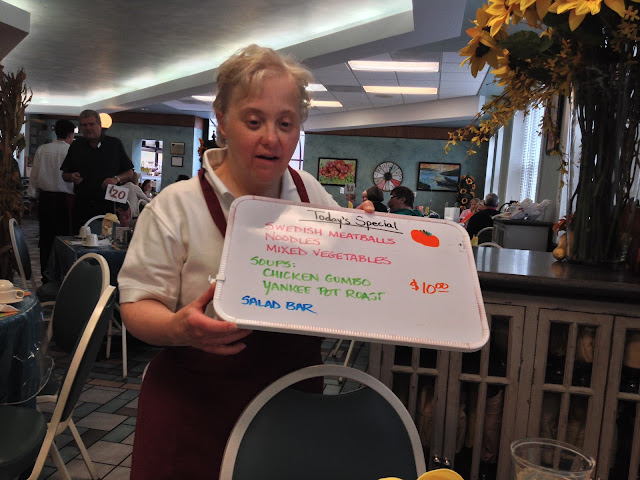 Today's Special
SWEDISH MEATBALLS
NOODLES
MIXED VEGETABLES
SOUPS:
CHICKEN GUMBO
YANKEE POT ROAST
$10.00
SALAD BAR
20